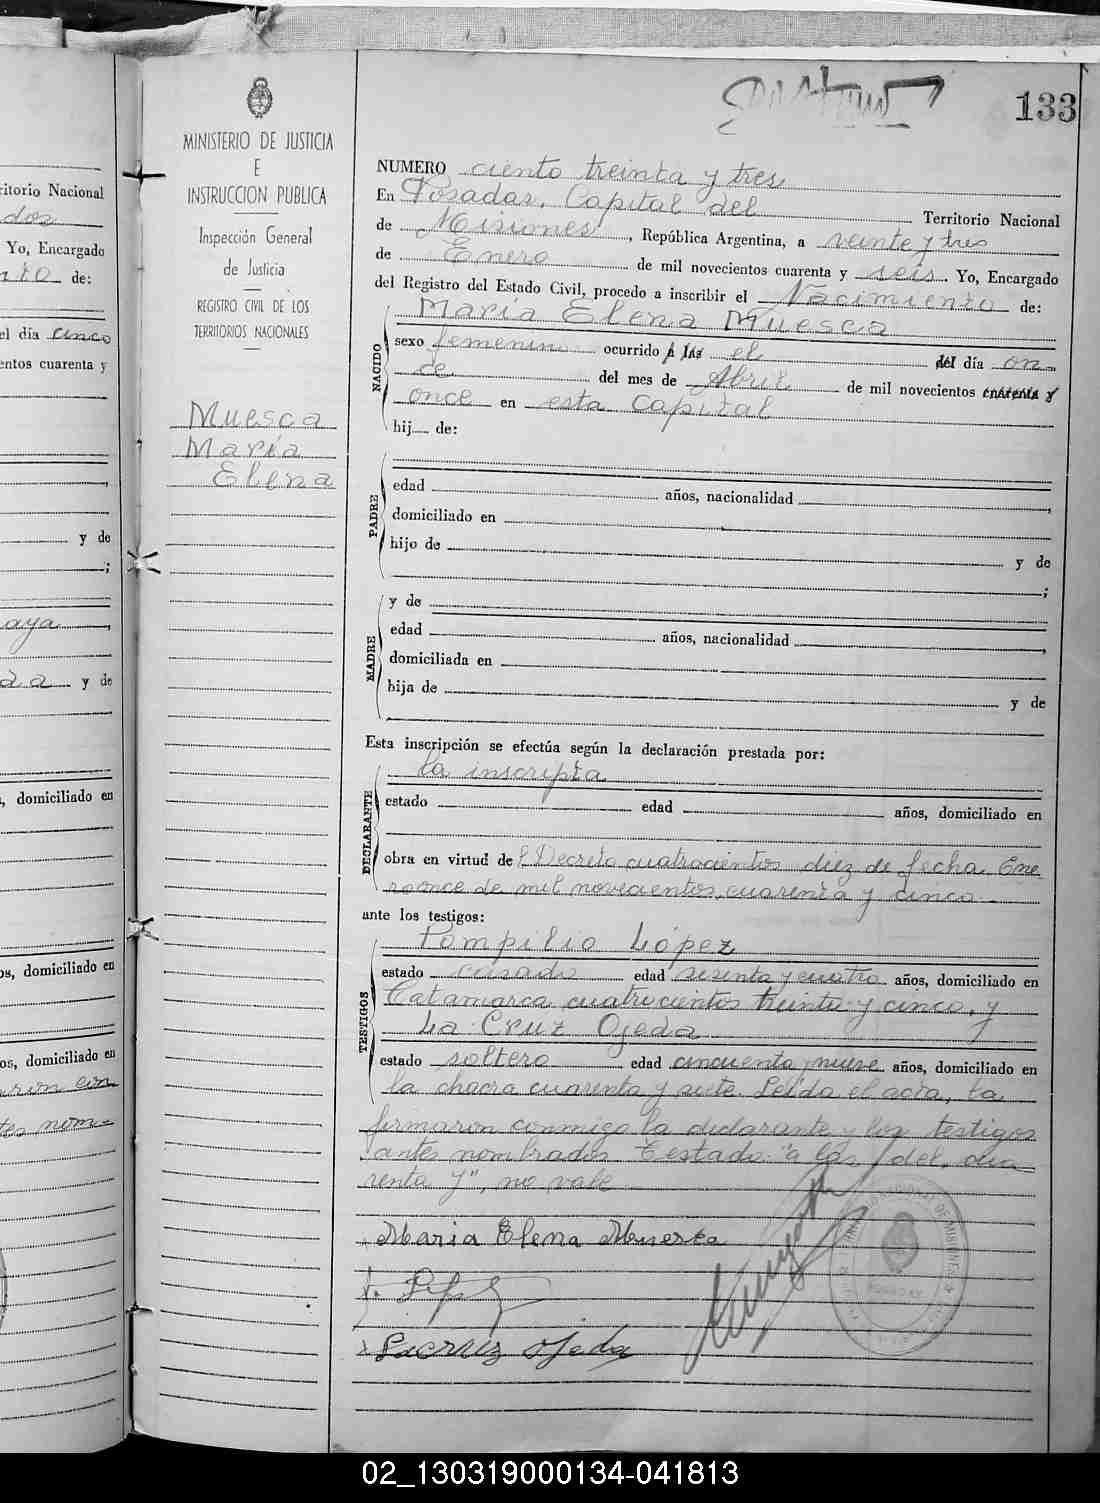 133
MINISTERIO DE JUSTICIA
E
INSTRUCCION PUBLICA
Inspección General
de Justicia
REGISTRO CIVIL DE LOS
TERRITORIOS NACIONALES
Muesca
María
Elena
NUMERO ciento treinta y tres
En Posadas, Capital del Territorio Nacional
de Misiones, República Argentina, a veinte y tres
de Enero de mil novecientos cuarenta y seis. Yo, Encargado
del Registro del Estado Civil, procedo a inscribir el Nacimiento de:
María Elena Muesca
NACIDO
sexo femenino ocurrido a las el del día on
ce del mes de Abril de mil novecientos cuarenta y
once en esta Capital
hij de:
PADRE
edad años, nacionalidad
domiciliado en
hijo de y de
;
MADRE
y de
edad años, nacionalidad
domiciliada en
hija de y de
Esta inscripción se efectúa según la declaración prestada por:
la inscripta
DECLARANTE
estado edad años, domiciliado en
obra en virtud del Decreto cuatrocientos diez de fecha Ene
ro once de mil novecientos cuarenta y cinco
ante los testigos:
Pompilio López
TESTIGOS
estado casado edad sesenta y cuatro años, domiciliado en
Catamarca cuatrocientos treinta y cinco, y
La Cruz Ojeda
estado soltero edad cincuenta nueve años, domiciliado en
la chacra cuarenta y siete. Leída el acta, la
firmaron conmigo la declarante y los testigos
antes nombrados. Testado: "a las / del, cua
renta y", no vale
Maria Elena Muesca
Lacruz Ojeda
ritorio Nacional
dos
Yo, Encargado
de:
el día cinco
entos cuarenta y
y de
;
aya
y de
, domiciliado en
os, domiciliado en
os, domiciliado en
aron con
tes nom-
02_130319000134-041813